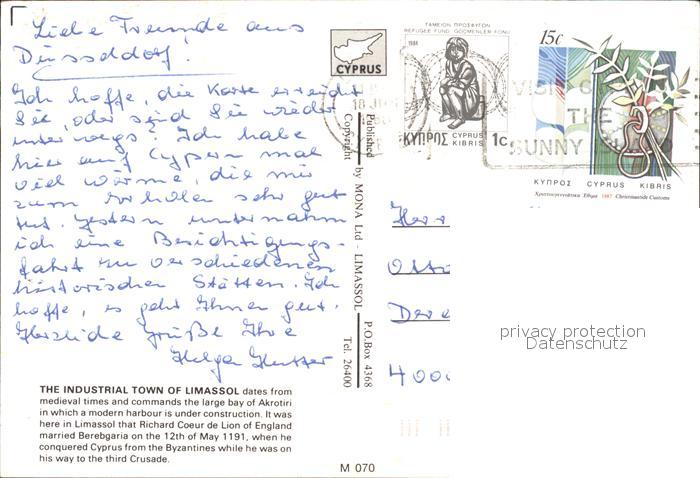 Liebe Freunde aus
Düsseldorf.
Ich hoffe, die Karte erreicht
Sie, oder sind Sie wieder
unterwegs? Ich habe
hier auf Cypern mal
viel Wärme, die mir
zum erholen sehr gut
tut. Gestern unternahm
ich eine Besichtigungs-
fahrt zu verschiedenen
historischen Stätten. Ich
hoffe, es geht Ihnen gut.
Herzliche Grüße Ihre
Helga
THE INDUSTRIAL TOWN OF LIMASSOL dates from
medieval times and commands the large bay of Akrotiri
in which a modern harbour is under construction. It was
here in Limassol that Richard Coeur de Lion of England
married Berebgaria on the 12th of May 1191, when he
conquered Cyprus from the Byzantines while he was on
his way to the third Crusade.
CYPRUS
Published by MONA Ltd - LIMASSOL P.O.Box 4368
Copyright Tel. 26400
M 070
ΤΑΜΕΙΟΝ ΠΡΟΣΦΥΓΩΝ
REFUGEE FUND GÖÇMENLER FONU
1984
ΚΥΠΡΟΣ CYPRUS KIBRIS 1c
15c
ΚΥΠΡΟΣ CYPRUS KIBRIS
Χριστουγεννιάτικα Έθιμα 1987 Christmastide Customs
VISIT
THE
SUNNY
Herr
4000
privacy protection
Datenschutz